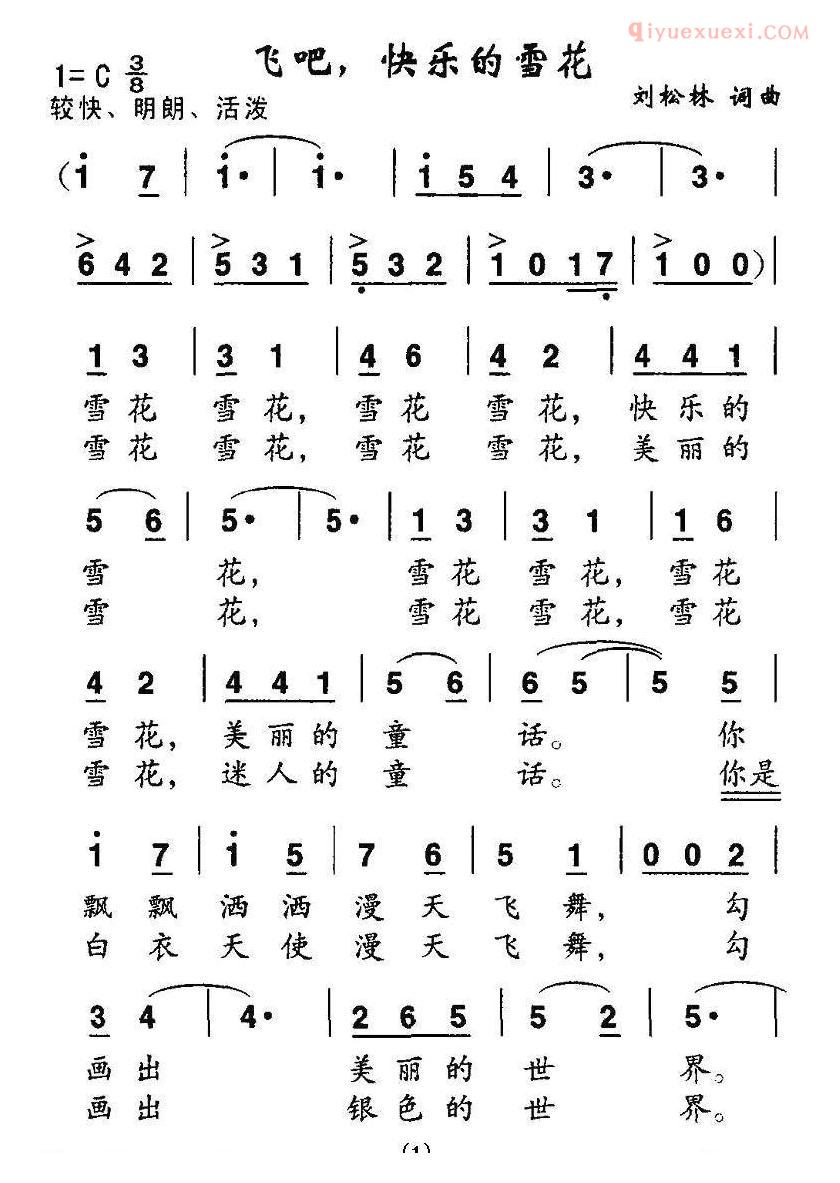 qiyuexuexi.com
飞吧，快乐的雪花
1=C 3/8
刘松林 词曲
较快、明朗、活泼
(1̇ 7 | 1̇· | 1̇· | 1̇ 5 4 | 3· | 3· |
6 4 2 | 5 3 1 | 5̣ 3 2 | 1 0 1 7̣ | 1 0 0) |
1 3 | 3 1 | 4 6 | 4 2 | 4 4 1 |
雪花 雪花，雪花 雪花，快乐的
雪花 雪花，雪花 雪花，美丽的
5 6 | 5· | 5· | 1 3 | 3 1 | 1 6 |
雪 花， 雪花 雪花，雪花
雪 花， 雪花 雪花，雪花
4 2 | 4 4 1 | 5 6 | 6 5 | 5 5 |
雪花，美丽的 童 话。 你
雪花，迷人的 童 话。 你是
1̇ 7 | 1̇ 5 | 7 6 | 5 1 | 0 0 2 |
飘飘 洒洒 漫天 飞舞， 勾
白衣 天使 漫天 飞舞， 勾
3 4 | 4· | 2 6 5 | 5 2 | 5· |
画出 美丽的 世 界。
画出 银色的 世 界。
(1)